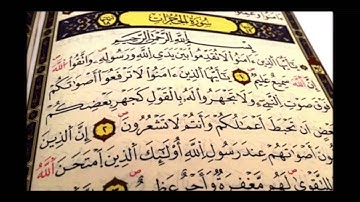 سُورَةُ الْحُجُرَاتِ
بِسْمِ اللَّهِ الرَّحْمَٰنِ الرَّحِيمِ
يَا أَيُّهَا الَّذِينَ آمَنُوا لَا تُقَدِّمُوا بَيْنَ يَدَيِ اللَّهِ وَرَسُولِهِ وَاتَّقُوا اللَّهَ
إِنَّ اللَّهَ سَمِيعٌ عَلِيمٌ ١ يَا أَيُّهَا الَّذِينَ آمَنُوا لَا تَرْفَعُوا أَصْوَاتَكُمْ
فَوْقَ صَوْتِ النَّبِيِّ وَلَا تَجْهَرُوا لَهُ بِالْقَوْلِ كَجَهْرِ بَعْضِكُمْ
أَنْ تَحْبَطَ أَعْمَالُكُمْ وَأَنْتُمْ لَا تَشْعُرُونَ ٢ إِنَّ الَّذِينَ
أَصْوَاتَهُمْ عِنْدَ رَسُولِ اللَّهِ أُولَٰئِكَ الَّذِينَ امْتَحَنَ اللَّهُ
لِلتَّقْوَىٰ لَهُمْ مَغْفِرَةٌ وَأَجْرٌ عَظِيمٌ